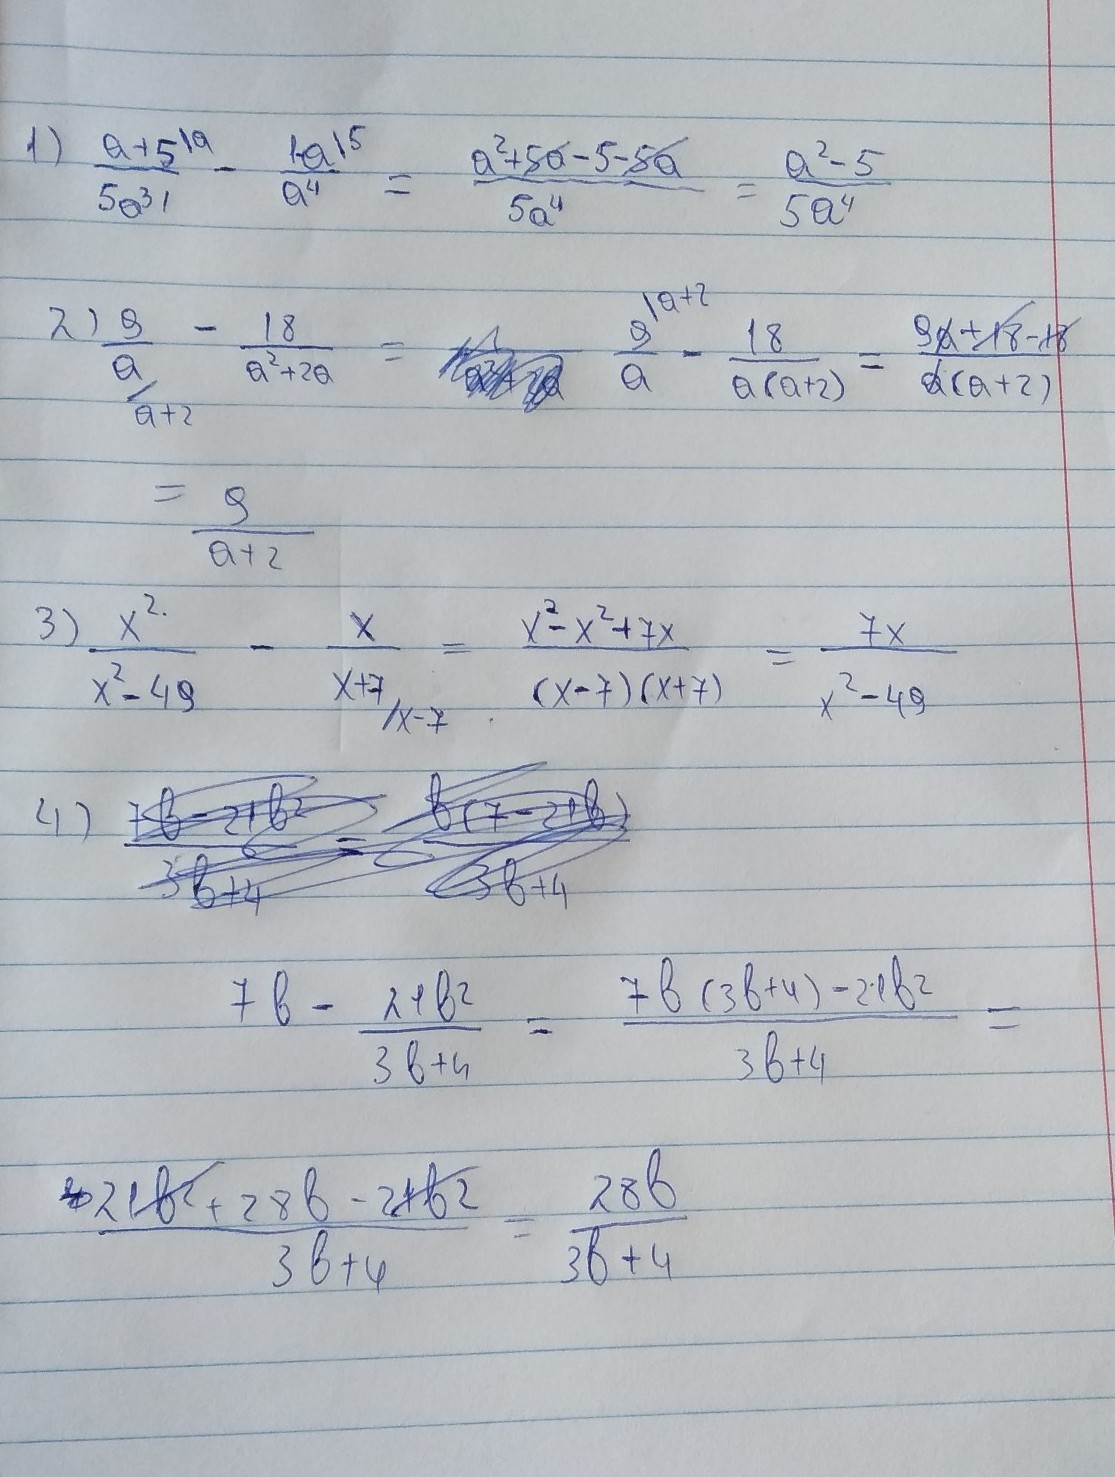 1) (a+5\a)/(5a³) - (1-a\5)/(a⁴) = (a²+5a-5-5a)/(5a⁴) = (a²-5)/(5a⁴)
2) 9/a /a+2 - 18/(a²+2a) = 9\a+2/a - 18/(a(a+2)) = (9a+18-18)/(a(a+2))
= 9/(a+2)
3) x²/(x²-49) - x/(x+7) /x-7 = (x²-x²+7x)/((x-7)(x+7)) = 7x/(x²-49)
4) (7b-21b²)/(3b+4) = b(7-21b)/(3b+4)
7b - 21b²/(3b+4) = (7b(3b+4)-21b²)/(3b+4) =
(21b²+28b-21b²)/(3b+4) = 28b/(3b+4)